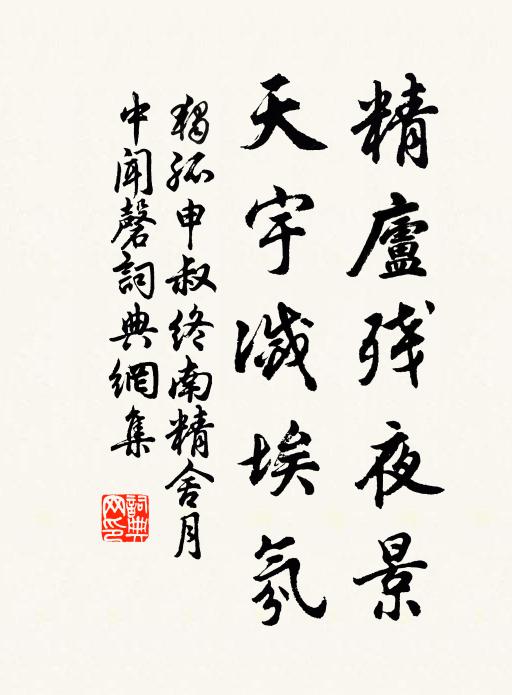 精廬殘夜景
天宇滅埃氛
獨孤申叔終南精舍月
中聞磬詞典網集
詞典網印